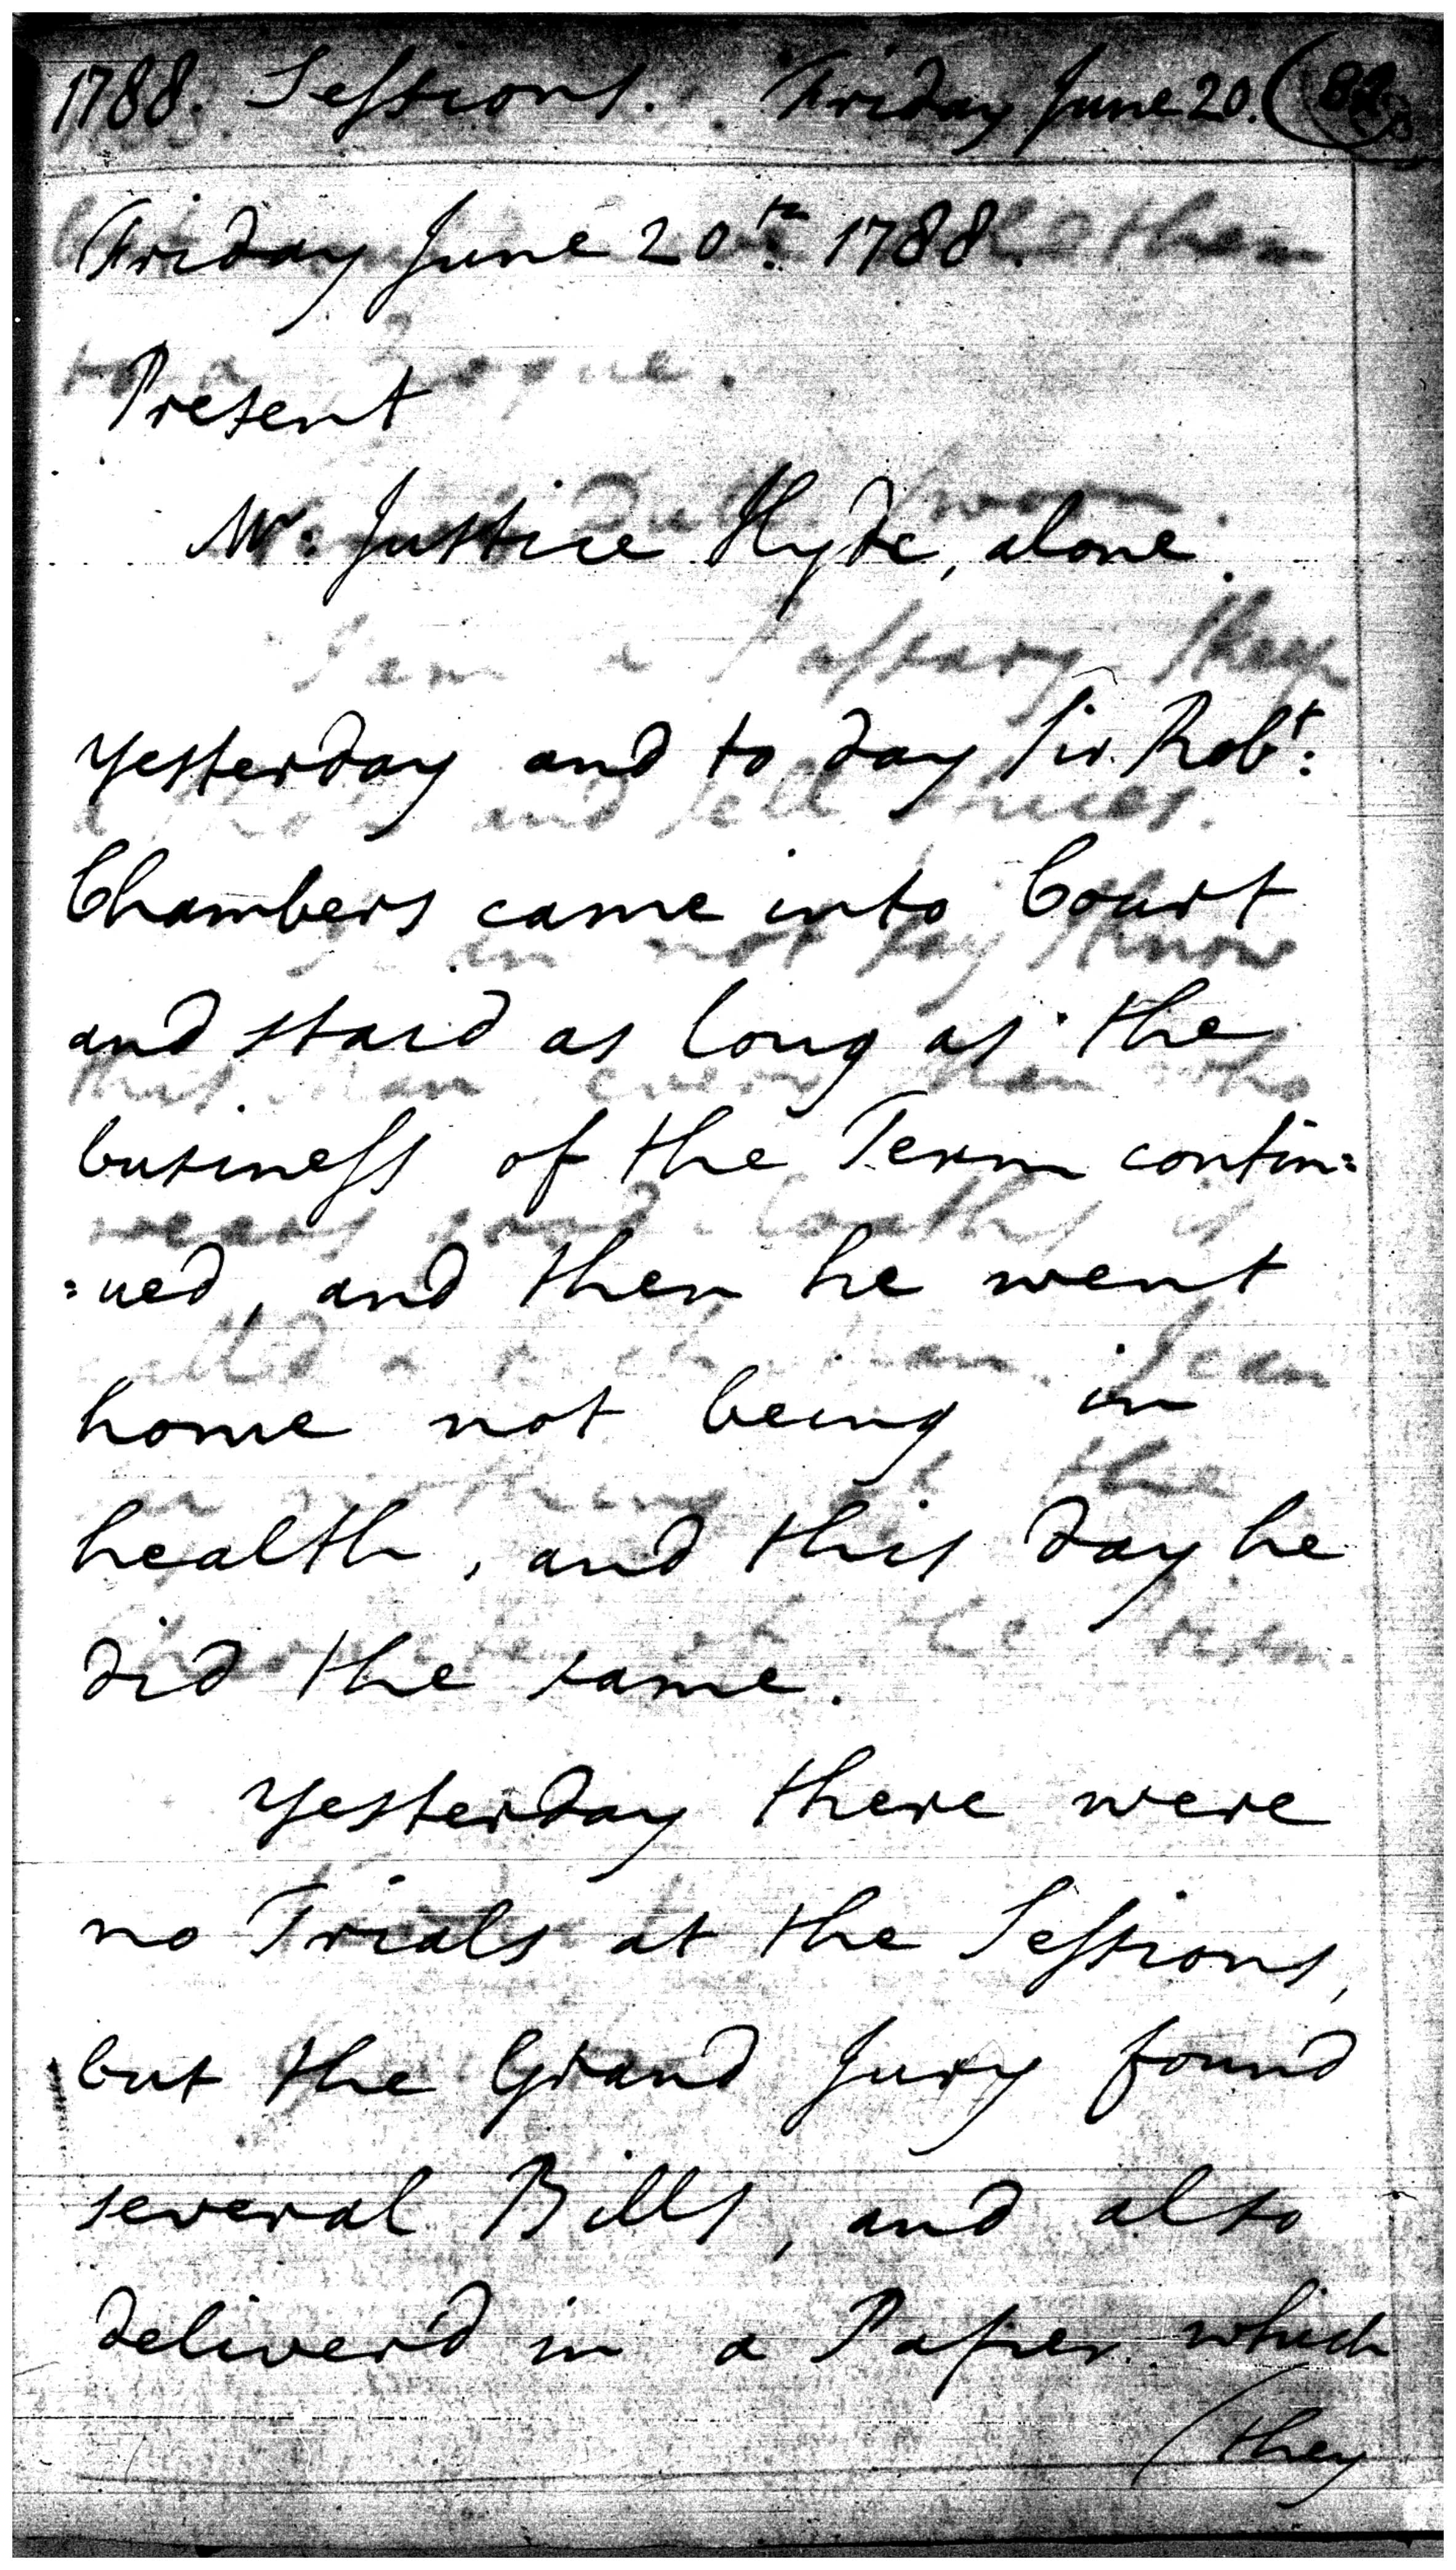 1788. Sessions. Friday June 20. (82
Friday June 20th. 1788.
Present
Mr. Justice Hyde, alone.
Yesterday and to day Sir Robt:
Chambers came into Court
and staid as long as the
business of the Term contin=
=ued, and then he went
home not being in
health, and this day he
did the same.
Yesterday there were
no Trials at the Sessions,
but the Grand Jury found
several Bills, and also
deliver'd in a Paper which
(they